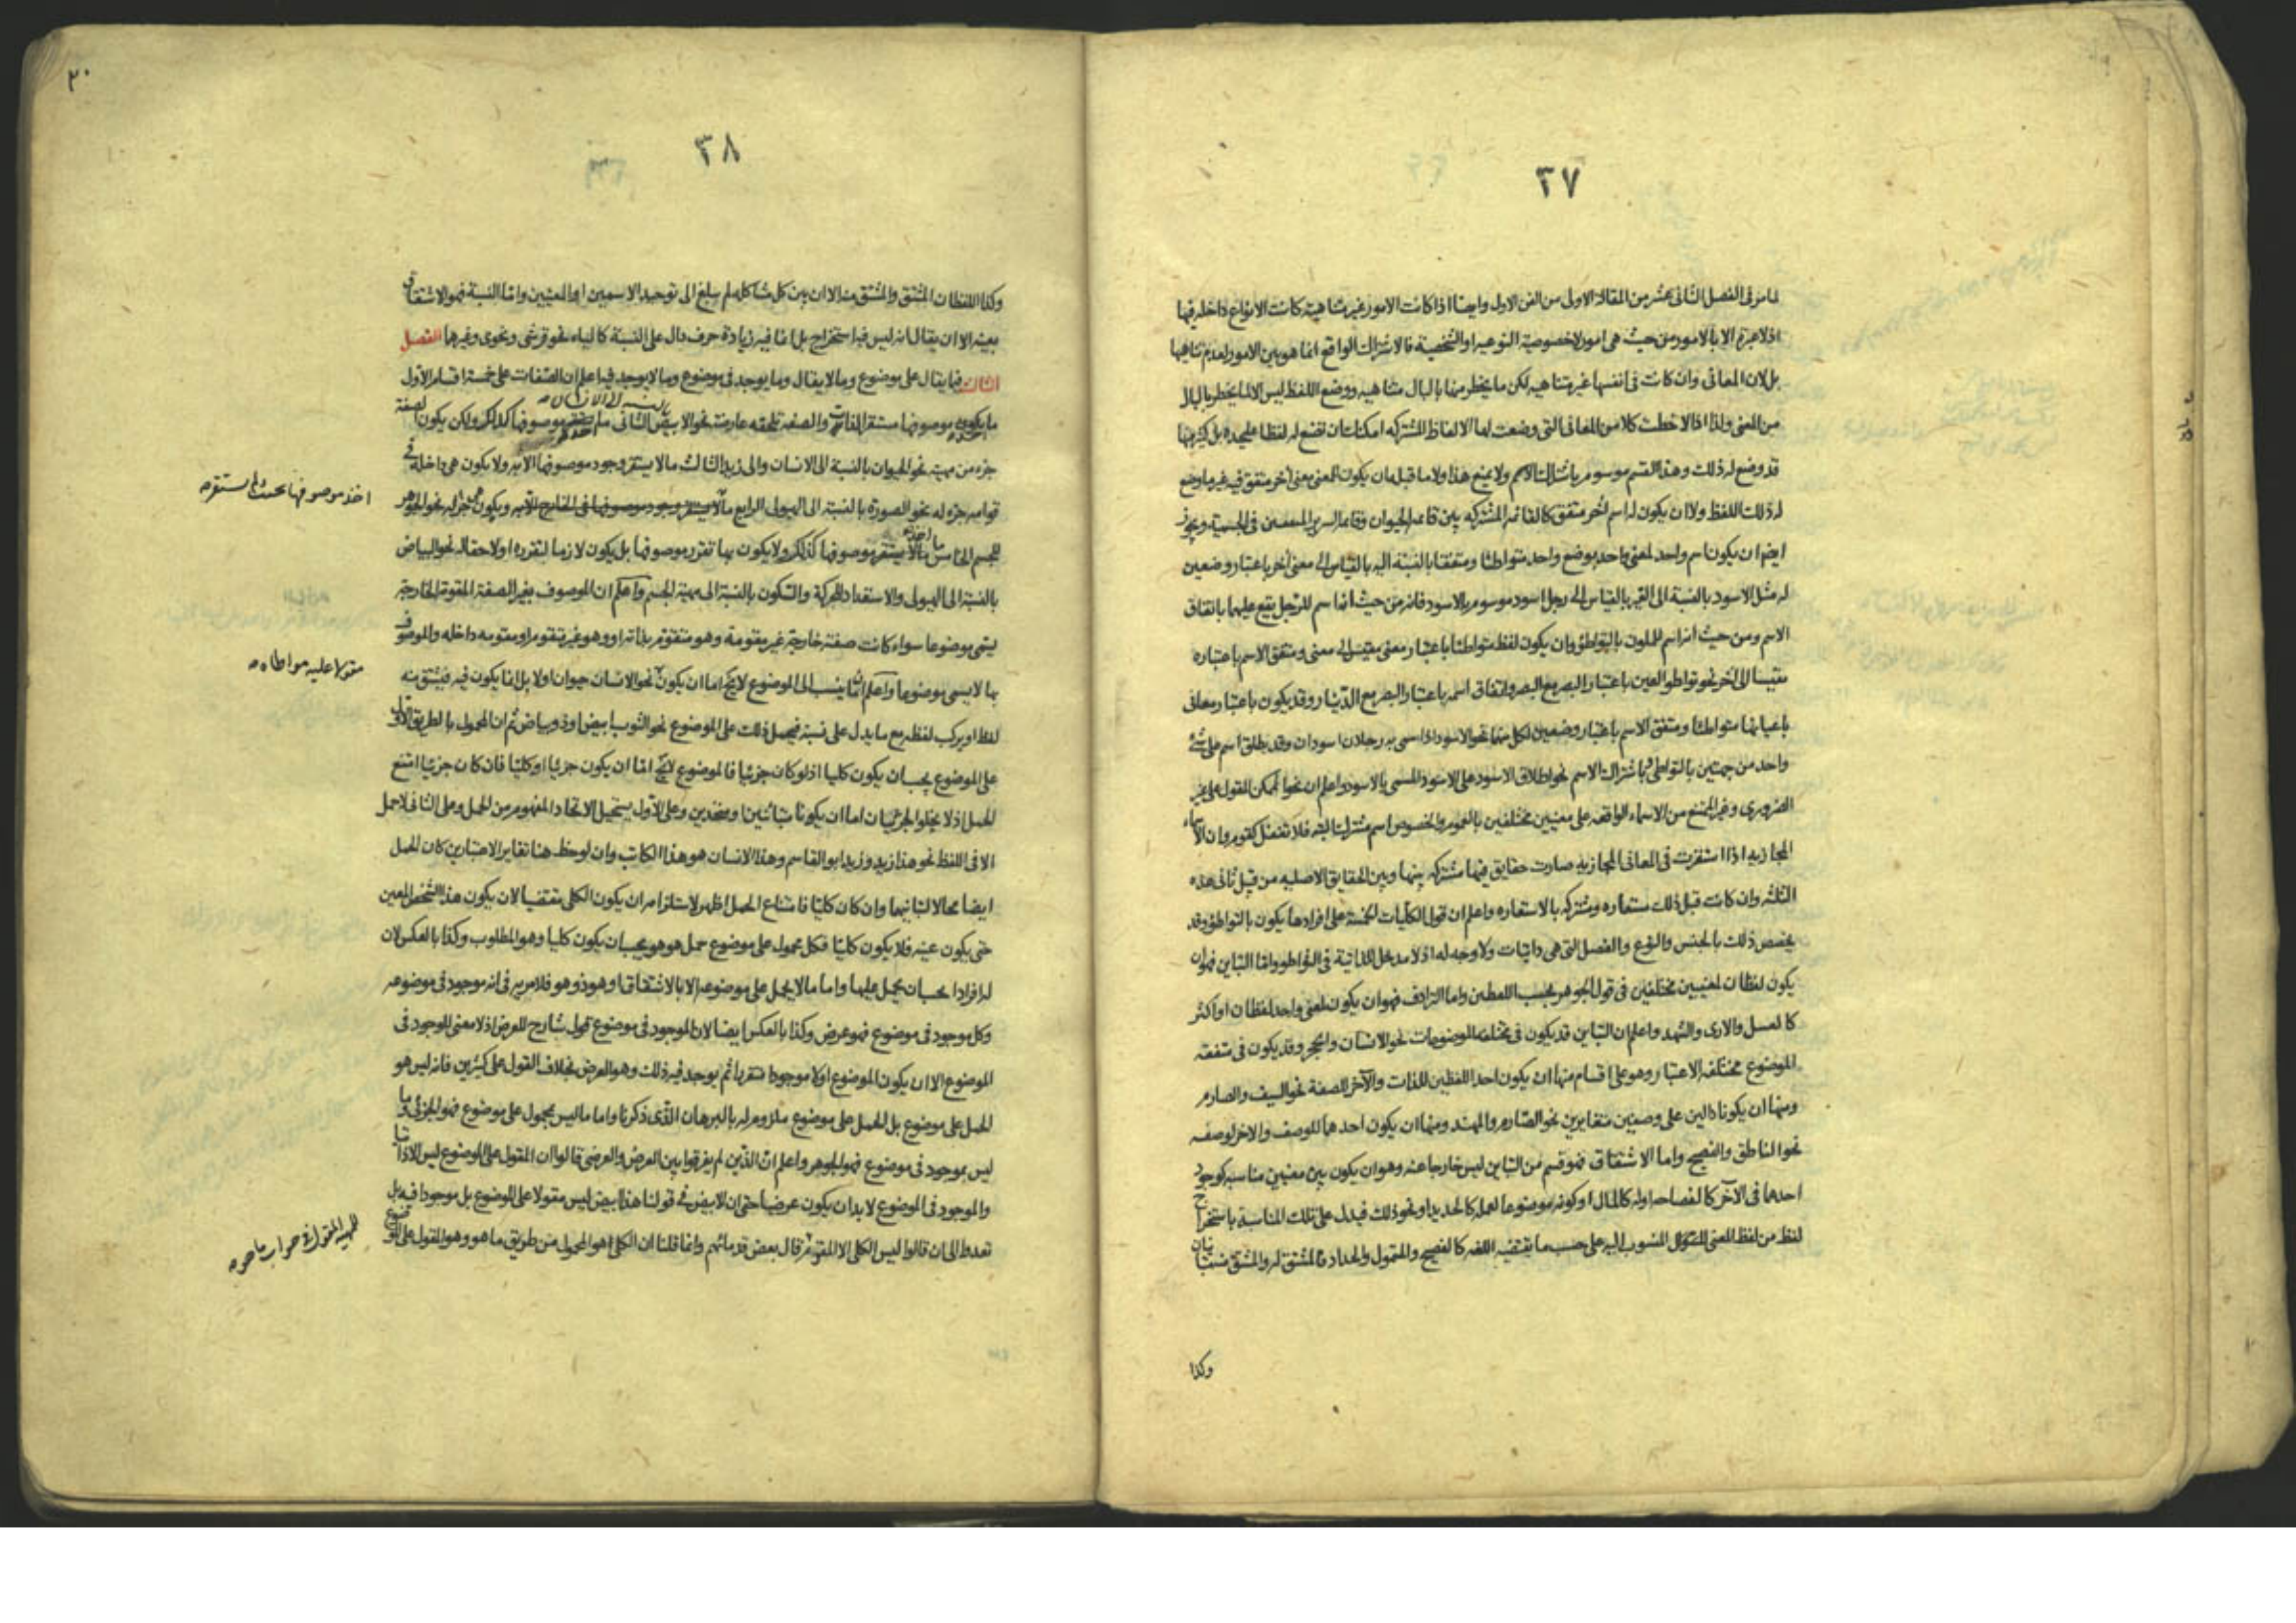 ٣٧
لما مر فى الفصل الثانى عشر من المقالة الاولى من الفن الاول وايضا اذا كانت الامور غير متناهية كانت الانواع داخله فيها
اذ لا عبرة الا بالامور من حيث هى امور لا خصوصية النوعيه او الشخصية فالاشتراك الواقع انما هو بين الامور لعدم تناهيها
بل لان المعانى وان كانت فى انفسها غير متناهيه لكن ما يخطر منها بالبال متناهيه ووضع اللفظ ليس الا لما يخطر بالبال
من المعنى ولذا اذا لاحظت كلا من المعانى التى وضعت لها الالفاظ المشتركه امكنك ان تضع له لفظا عليحده بل كثير منها
قد وضع له ذلك وهذا القسم موسوم باشتراك الاسم ولا يمنع هذا ولا ما قبله ان يكون لمعنى معنى آخر متفق فيه غير ما وضع
له ذلك اللفظ ولا ان يكون له اسم آخر متفق كالقائمه المشتركه بين قائمه الحيوان وقائمه السرير المتفقين فى الجسمية ويجوز
ايضا ان يكون اسم واحد لمعنى واحد بوضع واحد متواطئا ومتفقا بالنسبة اليه بالقياس الى معنى آخر باعتبار وضعين
له مثل الاسود بالنسبة الى القير بالقياس الى رجل اسود موسوم بالاسود فانه من حيث انه اسم للرجل يقع عليهما باتفاق
الاسم ومن حيث انه اسم للملون بالتواطؤ وان يكون لفظ متواطئا باعتبار معنى مقيس الى معنى ومتفق الاسم باعتباره
مقيسا الى آخر نحو تواطؤ العين باعتبار البصر مع البصر واتفاق اسمه باعتبار البصر مع الدينار وقد يكون باعتبار معانى
باعيانها متواطئا ومتفق الاسم باعتبار وضعين لكل منهما نحو الاسود اذا سمى به رجلان اسودان وقد يطلق اسم على شئ
واحد من جهتين بالتواطئ وباشتراك الاسم نحو اطلاق الاسود على الاسود المسمى بالاسود واعلم ان نحو الممكن المقول على غير
الضرورى وغير الممتنع من الاسماء الواقعه على معنيين مختلفين بالعموم والخصوص اسم مشترك البته فلا تغفل كقوم وان الاسماء
المجازيه اذا استقرت فى المعانى المجازيه صارت حقايق فيها مشتركه بينها وبين الحقايق الاصليه من قبيل ثانى هذه
الثلثه وان كانت قبل ذلك مستعاره ومشتركه بالاستعاره واعلم ان قول الكليات الخمسة على افرادها يكون بالتواطؤ وقد
يخصص ذلك بالجنس والنوع والفصل التى هى ذاتيات ولا وجه له اذ لا مدخل للذاتية فى التواطؤ واما التباين فهو ان
يكون لفظان لمعنيين مختلفين فى قول الجوهر بحسب اللفظين واما الترادف فهو ان يكون لمعنى واحد لفظان او اكثر
كالعسل والارى والشهد واعلم ان التباين قد يكون فى مختلفه الموضوعات نحو الانسان والحجر وقد يكون فى متفقه
الموضوع مختلفه الاعتبار وهو على اقسام منها ان يكون احد اللفظين للذات والآخر للصفة نحو السيف والصارم
ومنها ان يكونا دالين على وصفين متغايرين نحو الصارم والمهند ومنها ان يكون احدهما للوصف والاخر لوصفه
نحو الناطق والفصيح واما الاشتقاق فهو قسم من التباين ليس خارجا عنه وهو ان يكون بين معنيين مناسبه كوجود
احدهما فى الآخر كالفصاحه اوله كالمال او كونه موضوعا لعمله كالحديد او نحو ذلك فيدل على تلك المناسبة باستخراج
لفظ من لفظ المعنى المنسوب اليه على حسب ما يقتضيه اللغه كالفصيح والمتمول والحداد فالمشتق له والمشتق منه متباينان
وكذا
٢٠
٣٨
وكذا اللفظان المشتق والمشتق منه الا ان بين كل مشاكله لم يبلغ الى توحيد الاسمين او المعنيين واما النسبة فهو الاشتقاق
بعينه الا ان يقال انه ليس فيه استخراج بل انما فيه زيادة حرف دال على النسبة كالياء نحو قرشى ونحوى وغيرها الفصل
الثالث فيما يقال على موضوع وما لا يقال وما يوجد فى موضوع وما لا يوجد فيه اعلم ان الصفات على خمسة اقسام الاول
ما يكون موصوفها مستقر الذات والصفه تلحقه عارضة نحو الابيض بالنسبه الى الانسان الثانى ما موصوفها كذلك ولكن يكون الصفة
جزء من مهيته نحو الحيوان بالنسبة الى الانسان والى زيد الثالث ما لا يستقر وجود موصوفها الا به ولا يكون هى داخله فى
قوامه جزء له نحو الصورة بالنسبة الى الهيولى الرابع ما لا يستقر وجود موصوفها فى الخارج الا به ويكون هى جزء له نحو الجوهر
للجسم الخامس ما لا يستقر موصوفها كذلك ولا يكون بها تقرر موصوفها بل يكون لازما لتقرره او لاحقا له نحو البياض
بالنسبة الى الهيولى والاستعداد للحركة والسكون بالنسبة الى مهية الجسم واعلم ان الموصوف بغير الصفة المقومة الخارجة
يسمى موضوعا سواء كانت صفته خارجة غير مقومة وهو متقوم بذاته او وهو غير متقوم او مقومه داخله والموصوف
بها لا يسمى موضوعا واعلم ان ما ينسب الى الموضوع لا يخ اما ان يكون نحو الانسان حيوان اولا بل انما يكون فيه فيشتق منه
لفظ او يركب لفظه مع ما يدل على نسبة فيحمل ذلك على الموضوع نحو الثوب ابيض او ذو بياض ثم ان المحمول بالطريق الاول
على الموضوع يجب ان يكون كليا اذ لو كان جزئيا فالموضوع لا يخ اما ان يكون جزئيا او كليا فان كان جزئيا امتنع
الحمل اذ لا يخلوا الجزئيان اما ان يكونا متباينين او متحدين وعلى الاول يستحيل الاتحاد المفهوم من الحمل وعلى الثانى لا حمل
الا فى اللفظ نحو هذا زيد وزيد ابو القاسم وهذا الانسان هو هذا الكاتب وان لوحظ هنا تغاير الاعتبارين كان الحمل
ايضا محالا لتباينهما وان كان كليا فامتناع الحمل اظهر لاستلزامه ان يكون الكلى مقتضيا لان يكون هذا الشخص المعين
حتى يكون عينه فلا يكون كليا فكل محمول على موضوع حمل هو هو يجب ان يكون كليا وهو المطلوب وكذا بالعكس لان
له افرادا يجب ان يحمل عليها واما ما لا يحمل على موضوعه الا بالاشتقاق او هو ذو هو فلا مريه فى انه موجود فى موضوعه
وكل موجود فى موضوع فهو عرض وكذا بالعكس ايضا لان الموجود فى موضوع قول شارح للعرض اذ لا معنى للموجود فى
الموضوع الا ان يكون الموضوع اولا موجودا متقررا ثم يوجد فيه ذلك وهو العرض بخلاف القول على كثيرين فانه ليس هو
الحمل على موضوع بل الحمل على موضوع ملزوم له بالبرهان الذى ذكرنا واما ما ليس بمحمول على موضوع فهو الجزئى وما
ليس بموجود فى موضوع فهو الجوهر واعلم ان الذين لم يفرقوا بين العرض والعرضى قالوا ان المقول على الموضوع ليس الا ذاتيا
والموجود فى الموضوع لا بد ان يكون عرضيا حتى ان الابيض فى قولنا هذا ابيض ليس مقولا على الموضوع بل موجودا فيه بل
تعدوا الى ان قالوا ليس الكلى الا المقوم قال بعض قدمائهم وانما قلنا ان الكلى هو المحمول من طريق ما هو وهو المقول على الموضوع
اخذ موصوفها بحيث
مقولا عليه مواطاه
المقول فى جواب ما هو